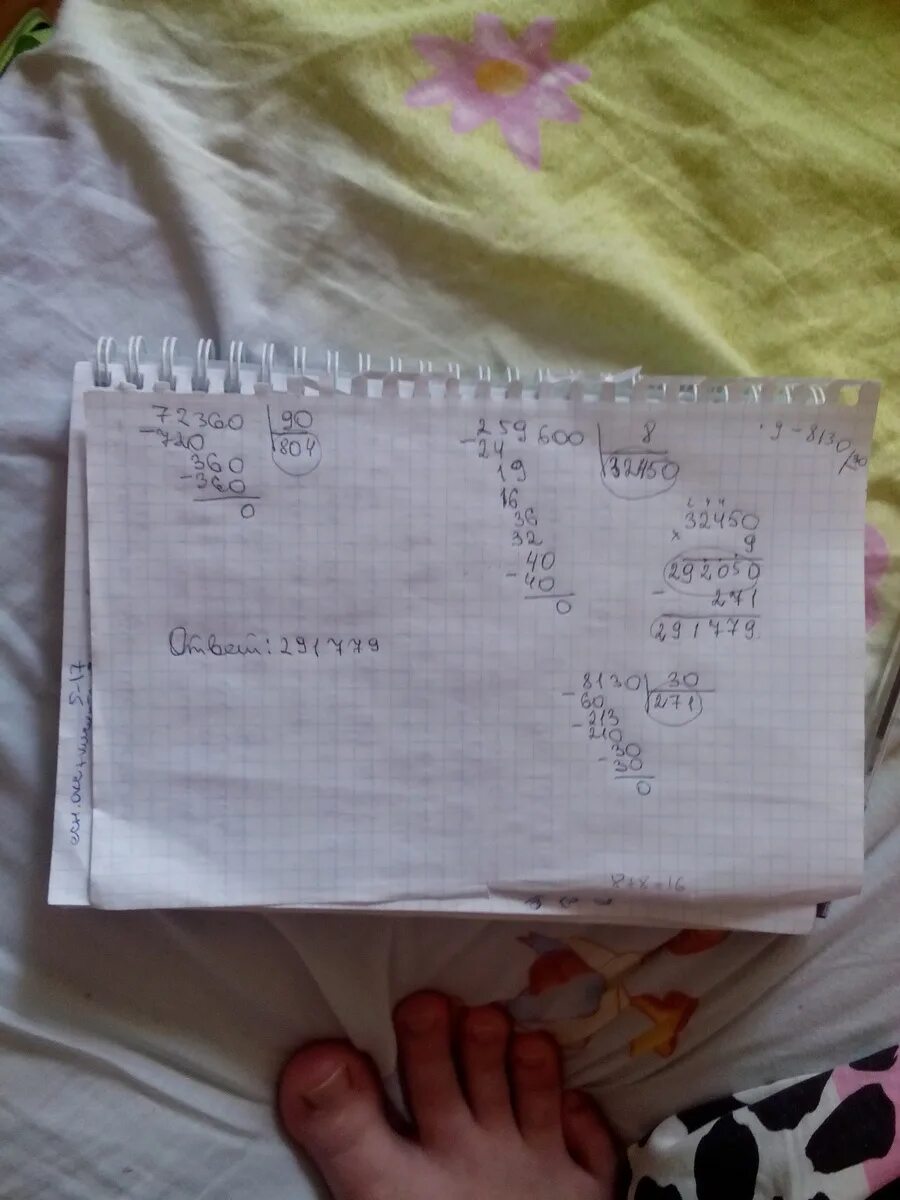 72360 | 90
- 720 804
360
- 360
0
Ответ: 291779
- 259600 | 8
24 32450
19
16
36
32
40
- 40
0
· 9 - 8130/30
32450
x 9
292050
- 271
291779
- 8130 | 30
60 271
- 213
210
30
- 30
0
8+8=16
5-17